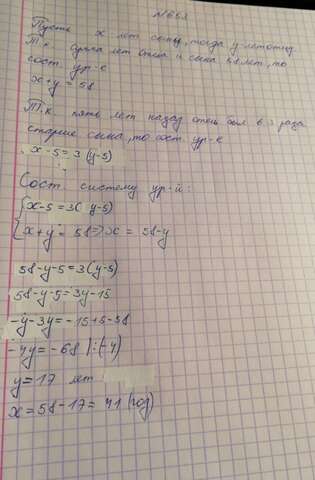 №653
Пусть x лет сыну, тогда y-лет отцу.
Т.к. сумма лет отца и сына 58 лет, то
сост. ур-е
x+y=58
Т.к. пять лет назад отец был в 3 раза
старше сына, то сост. ур-е
x-5=3(y-5)
Сост. систему ур-й:
x-5=3(y-5)
x+y=58=>x=58-y
58-y-5=3(y-5)
58-y-5=3y-15
-y-3y=-15+5-58
-4y=-68 |:(-4)
y=17 лет
x=58-17=41 (год)